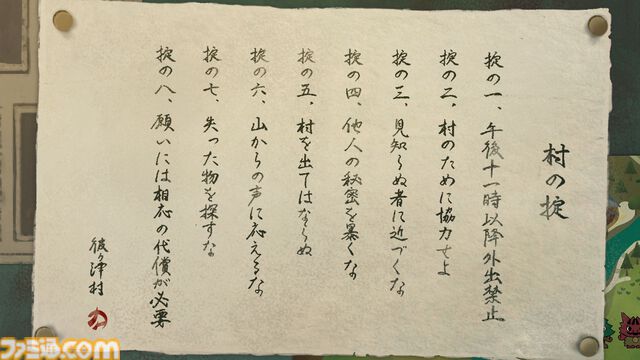 村の掟
掟の一、午後十一時以降外出禁止
掟の二、村のために協力せよ
掟の三、見知らぬ者に近づくな
掟の四、他人の秘密を暴くな
掟の五、村を出てはならぬ
掟の六、山からの声に応えるな
掟の七、失った物を探すな
掟の八、願いには相応の代償が必要
彼ヶ津村
ファミ通.com